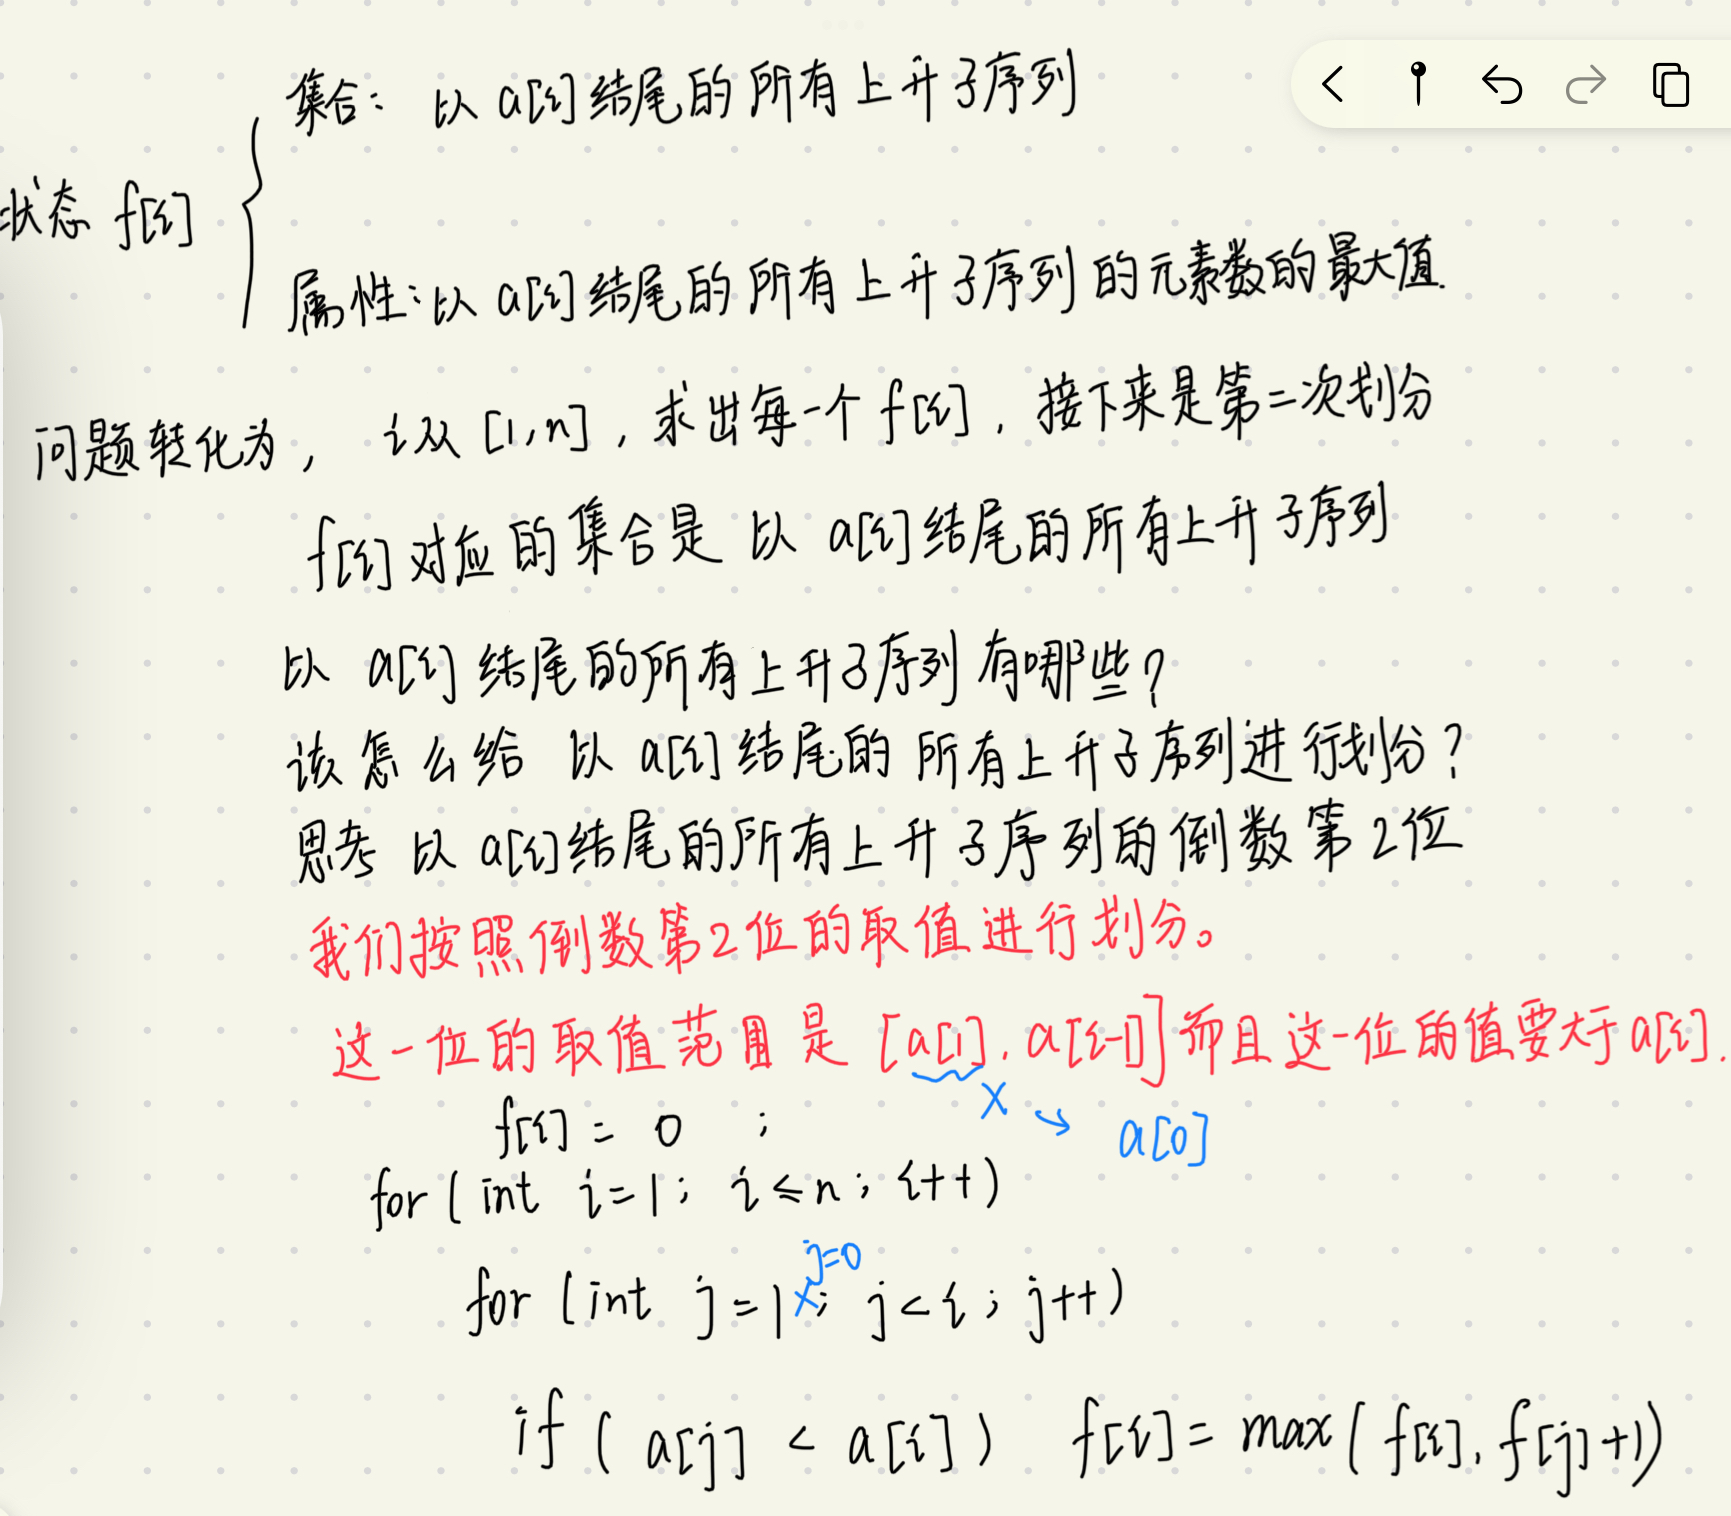 集合: 以 a[i] 结尾的所有上升子序列
状态 f[i]
属性:以 a[i] 结尾的所有上升子序列的元素数的最大值.
问题转化为, i从 [1,n], 求出每一个 f[i], 接下来是第二次划分
f[i] 对应的集合是 以 a[i] 结尾的所有上升子序列
以 a[i] 结尾的所有上升子序列有哪些?
该怎么给 以 a[i] 结尾的 所有上升子序列进行划分?
思考 以 a[i] 结尾的所有上升子序列的倒数第2位
我们按照倒数第2位的取值进行划分。
这一位的取值范围是 [a[1], a[i-1]] 而且这一位的值要大于 a[i].
x → a[0]
f[i] = 0 ;
for ( int i=1; i≤n; i++)
j=0
for (int j=1 x; j<i; j++)
if ( a[j] < a[i] ) f[i] = max( f[i], f[j]+1)